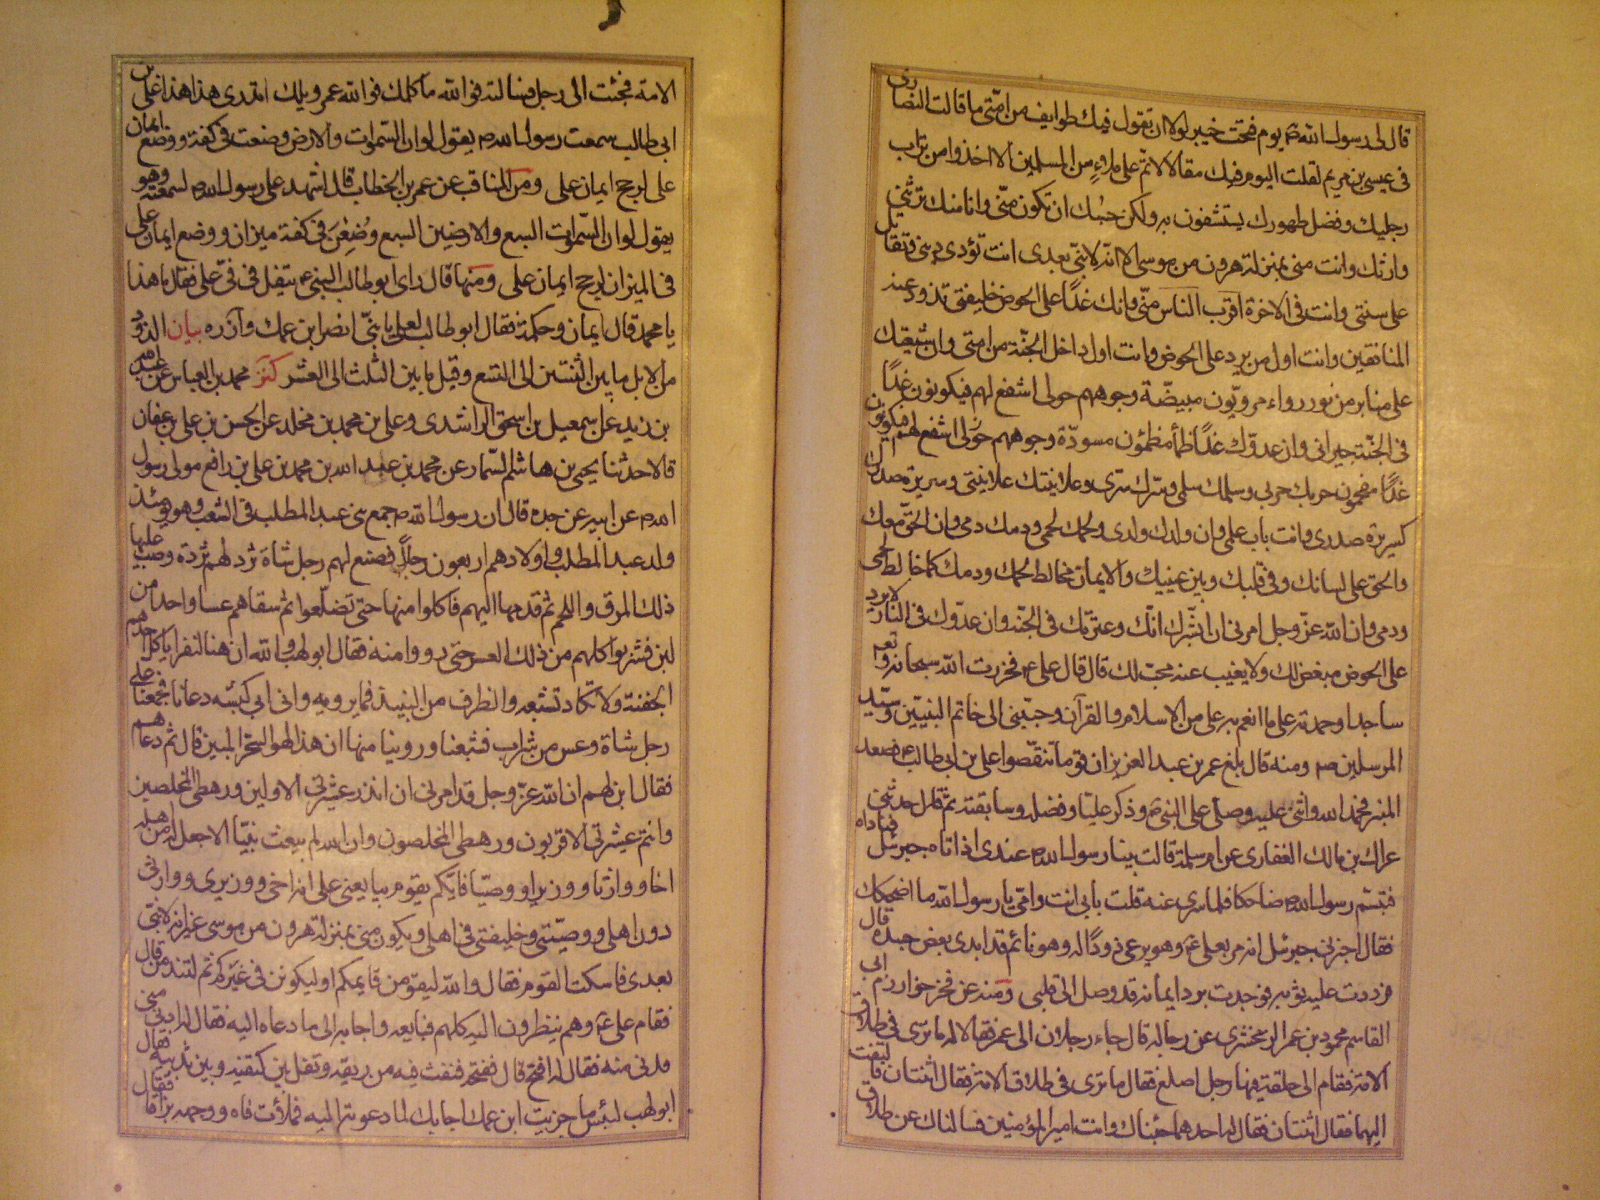 قال لى رسول الله ص يوم فتحت خيبر لولا ان يقول فيك طوايف من امتى ما قالت النصارى
فى عيسى بن مريم لقلت اليوم فيك مقالا لا تمر على ملاء من المسلمين الا اخذوا من تراب
رجليك وفضل طهورك يستشفون به ولكن حسبك ان تكون منّى وانا منك ترثنى
وارثك وانت منى بمنزلة هرون من موسى الا انه لا نبى بعدى انت تؤدى دينى وتقاتل
على سنتى وانت فى الاخرة اقرب الناس منّى وانك غدًا على الحوض خليفتى تذود عنه
المنافقين وانت اول من يرد على الحوض وانت اول داخل الجنّة من امتى وان شيعتك
على منابر من نور رواء مرويّون مبيضّة وجوههم حولى اشفع لهم فيكونون غدًا
فى الجنّة جيرانى وان عدوّك غدًا ظماء مظمئون مسودّة وجوههم
غدًا مقمحون حربك حربى وسلمك سلمى وسرك سرى وعلانيتك علانيتى وسريرة صدرك
كسريرة صدرى وانت باب علمى وان ولدك ولدى ولحمك لحمى ودمك دمى وان الحقّ معك
والحق على لسانك وفى قلبك وبين عينيك والايمان مخالط لحمك ودمك كما خالط لحمى
ودمى وان الله عزّ وجل امرنى ان ابشّرك انّك وعترتك فى الجنّة وان عدوّك فى النار لا يرد
على الحوض مبغض لك ولا يغيب عنه محبّ لك قال قال على ع فخررت لله سبحانه وتع
ساجدا وحمدته على ما انعم به على من الاسلام والقرآن وحبّبنى الى خاتم النبيين وسيّد
المرسلين ص ومنه قال بلغ عمر بن عبد العزيز ان قوما تنقّصوا على بن ابى طالب ع فصعد
المنبر فحمد الله واثنى عليه وصلى على النبى ص وذكر عليّا وفضله وسابقته ثم قال حدثنى
عراك بن مالك الغفارى عن ام سلمة قالت بينا رسول الله ص عندى اذ اتاه جبرئيل فناداه
فتبسّم رسول الله ص ضاحكا فلما سرى عنه قلت بابى انت وامّى يا رسول الله ما اضحكك
فقال اخبرنى جبرئيل انه مر بعلى ع وهو يرعى ذودًا له وهو نائم قد ابدى بعض جسده قال
فرددت عليه ثوبه فوجدت برد ايمانه قد وصل الى قلبى ومنه عن فخر خوارزم ابى
القاسم محمود بن عمر الزمخشرى عن رجاله قال جاء رجلان الى عمر فقالا له ما ترى فى طلاق
الامة فقام الى حلقة فيها رجل اصلع فقال ما ترى فى طلاق الامة فقال اثنتان فالتفت
اليهما فقال اثنتان فقال له احدهما جئناك وانت امير المؤمنين فسالناك عن طلاق
الامة فجئت الى رجل فسالته فوالله ما كلمك فقال له عمر ويلك اتدرى من هذا هذا على بن
ابى طالب سمعت رسول الله ص يقول لو ان السموات والارض وضعت فى كفة ووضع ايمان
على لرجح ايمان على ومن المناقب عن عمر بن الخطاب قال اشهد على رسول الله ص لسمعته وهو
يقول لو ان السّموات السبع والارضين السبع وُضِعْنَ فى كفة ميزان ووضع ايمان على
فى الميزان لرجح ايمان على ومنها قال راى ابو طالب النبى ص يتفل فى فىّ على فقال ما هذا
يا محمد قال ايمان وحكمة فقال ابو طالب لعلى يا بنىّ انصر ابن عمك وآزره بيان الذود
من الابل ما بين الثنتين الى التسع وقيل ما بين الثلث الى العشر كنز محمد بن العباس عن عبد الله
بن زيد عن اسمعيل بن اسحق الراشدى وعلى بن محمد بن مخلد عن الحسن بن على بن عفان
قالا حدثنا يحيى بن هاشم السمسار عن محمد بن عبد الله بن محمد بن على بن رافع مولى رسول
الله ص عن ابيه عن جده قال ان رسول الله ص جمع بنى عبد المطلب فى الشعب وهو يومئذ
ولد عبد المطلب واولادهم اربعون رجلاً فصنع لهم رجل شاة ثرد لهم ثردة وصب عليها
ذلك المرق واللحم ثم قدمها اليهم فاكلوا منها حتى تضلّعوا ثم سقاهم عسا واحدا من
لبن فشربوا كلهم من ذلك العس حتى رووا منه فقال ابو لهب والله ان هنا لنفرا ياكل احدهم
الجفنة ولا تكاد تشبعه والظرف من النبيذ فما يرويه وان ابن ابى كبشة دعانا فجمعنا على
رجل شاة وعس من شراب فشبعنا وروينا منها ان هذا لهو السحر المبين قال ثم دعاهم
فقال لهم ان الله عزّ وجل قد امرنى ان انذر عشيرتى الاولين ورهطى المخلصين
وانتم عشيرتى الاقربون ورهطى المخلصون وان الله لم يبعث نبيّا الا جعل له من اهله
اخا ووارثا ووزيرا ووصيّا فايّكم يقوم يبايعنى على انه اخى ووزيرى ووارثى
دون اهلى ووصيّتى وخليفتى فى اهلى ويكون منى بمنزلة هرون من موسى غير انه لا نبىّ
بعدى فاسكت القوم فقال والله ليقومن قايمكم او ليكونن فى غيركم ثم لتندمن قال
فقام على ع وهم ينظرون اليه كلهم فبايعه واجابه الى ما دعاه اليه فقال له ادن منى
فدنى منه فقال له افتح فاك ففتحه فنفث فيه من ريقه وتفل بين كتفيه وبين ثدييه فقال
ابو لهب لبئس ما جزيت ابن عمك اجابك لما دعوته اليه فملأت فاه ووجهه بزاقا فقال